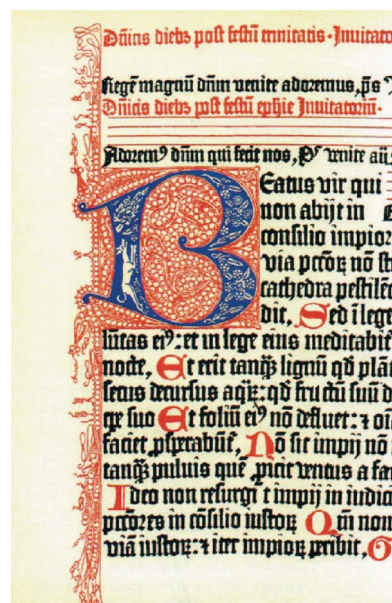 Dn̄icis diebꝫ post festū trinitatis · Inuitato
Regē magnū dn̄m venite adoremus, p̄s
Dn̄icis diebꝫ post festū ephie Inuitatoriū ·
Adorem⁹ dn̄m qui fecit nos, P̄s venite
Beatus vir qui
non abijt in
consilio impior
via pctō⁊ꝝ nō st
cathedra pestilē
dit, Sed ī lege
lūtas ei⁹: et in lege eius meditabit̄
nocte, Et erit tanqꝫ lignū qd̄ plā
secus decursus aqꝝ: qd̄ fructū suū d
pe suo Et foliū ei⁹ nō defluet: ⁊ oī
faciet ꝓsperabūt̄, Nō sic impij nō
tanqꝫ puluis quē ꝓicit ventus a fa
Ideo non resurgūt impij in iudici
pctōres in cōsilio iustoꝝ Qm̄ nou
viā iustoꝝ: ⁊ iter impioꝝ peribit,